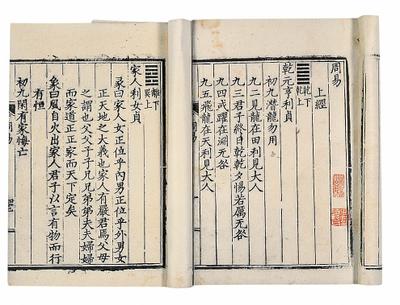 周易
上經
乾下
乾上
乾元亨利貞
初九潛龍勿用
九二見龍在田利見大人
九三君子終日乾乾夕惕若厲无咎
九四或躍在淵无咎
九五飛龍在天利見大人
離下
家人利女貞
彖曰家人女正位乎內男正位乎外男女
正天地之大義也家人有嚴君焉父母
之謂也父父子子兄兄弟弟夫夫婦婦
而家道正正家而天下定矣
象曰風自火出家人君子以言有物而行
有恒
初九閑有家悔亡